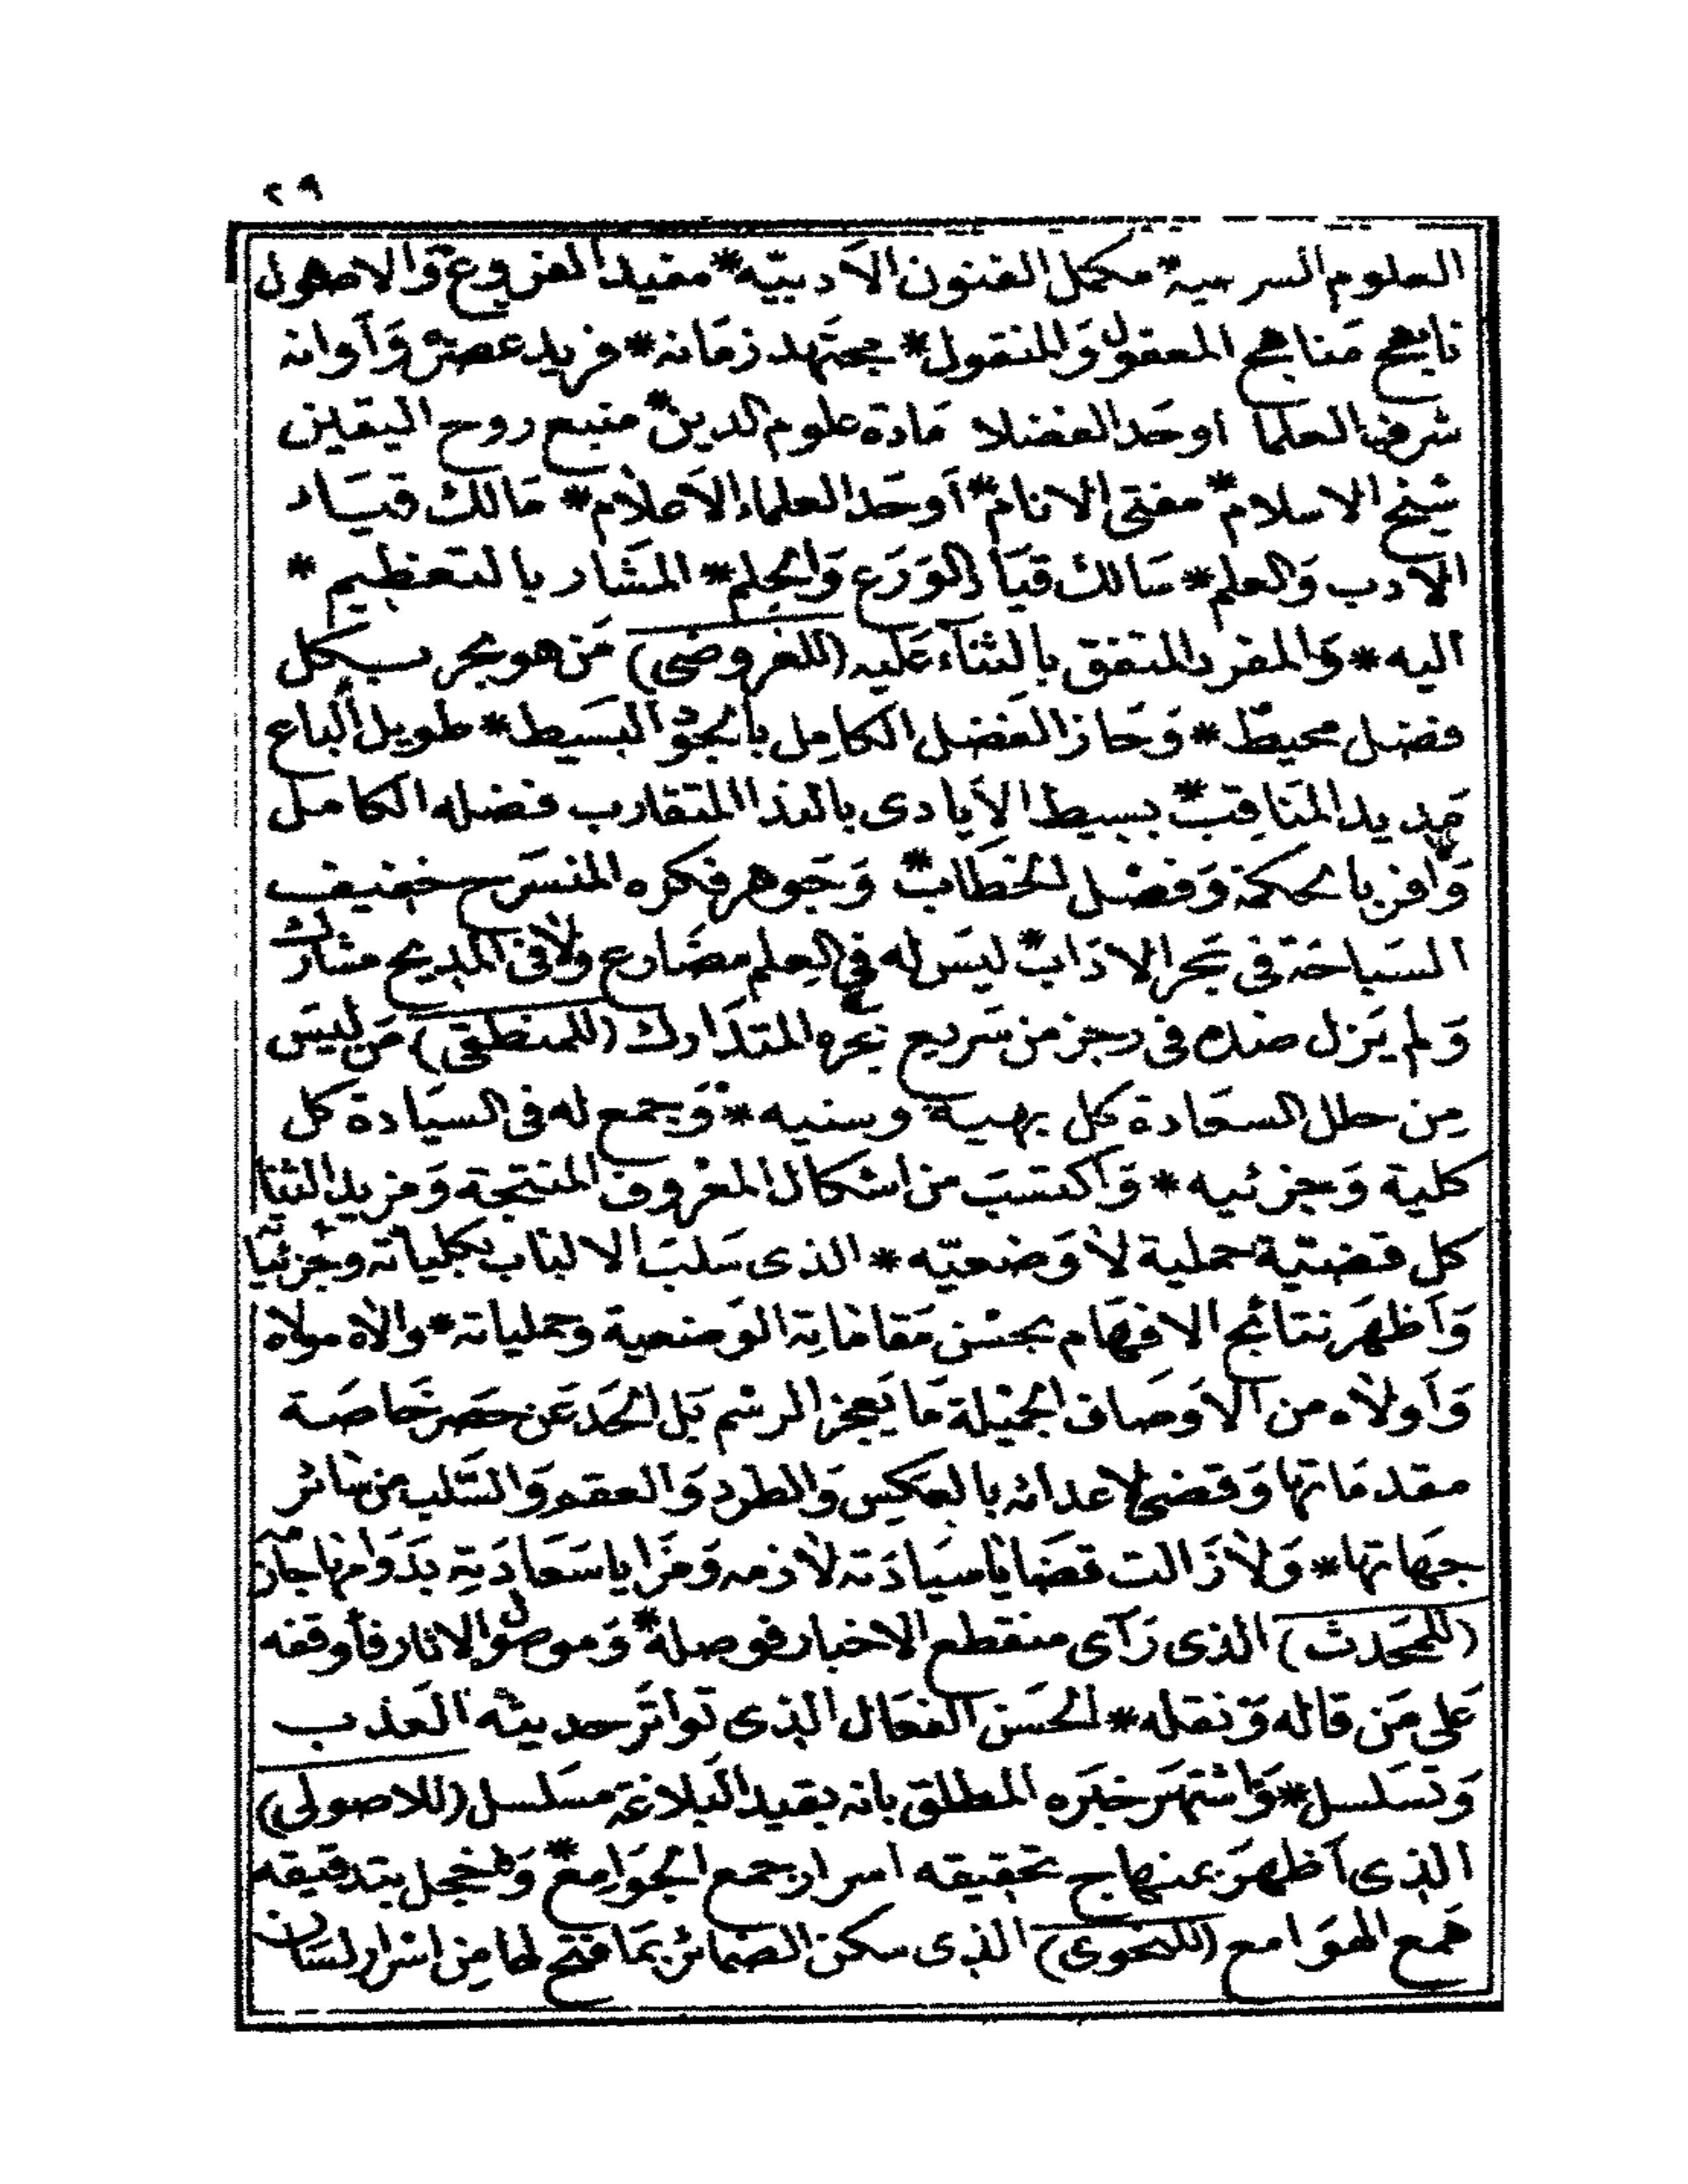 ٢٩
العلوم الشرعية * مكمل الفنون الأدبيّه * مفيد الفروع وَالاصول
ناهج مَناهج المعقول وَالمنقول * مجتَهد زمَانه * فريد عصره وَأوانه
شرف العلما اوحَد الفضلا مَادة علوم الدين * منبع روح اليقين
شيخ الاسلام * مفتى الانام * أوحَد العلماء الأعلام * مَالك قيَاد
الأدب وَالعلم * سَالك قيَاد الوَرَع وَالحِلم * المشَار بالتعظيم *
اليه * وَالمفرد المتفق بالثناء عَليه (للعروضى) مَن هو بحر بكل
فضل محيط * وَحَاز الفضل الكامِل بالجود البسَيط * طويل الباع
مَديد المنَاقِب * بسيط الأيادى بالندا المتقارب فضله الكامل
وَافر بالحكمة وَفصْل الخطاب * وَجَوهر فكره المنسَرح خفيف
السَباحَة فى بَحر الادَاب * ليسَ له فى العِلم مضَارع وَلا فى المديح مشارك
وَلم يَزل ضده فى رجز من سَريع بَحره المتدَارك (للمنطقى) مَن لبسَ
مِن حلل السعَادة كل بهية وسنيه * وَجمع له فى السيَادة كل
كلية وَجزئيه * وَاكتسَبَ من اشكال المعْروف المنتجة وَمزيد الثنا
كل قضيّة حملية لا وَضعيّه * الذى سَلبَ الالبَاب بكلياته وجزئياته
وَأظهَر نتائج الافهَام بحسْن مَقامَاتِه الوَضعية وحملياته * وَالاه مولاه
وَأولاه من الأوصَاف الجميْلة مَا يَعجز الرسْم بَل الحَد عَن حَصر خَاصَة
مقدمَاتها وَقضى لاعدائه بالعكِس وَالطرد وَالعقم وَالسَّلب من سَائر
جهَاتها * وَلا زَالت قضَايا سيَادَته لازمه وَمزَايا سَعَادَتِه بدَوَامها جازمه
(للمحَدث) الذى رَآى منقطع الاخبار فوصله * وَموصُول الاثار فأوقفه
عَلى مَن قاله وَنقله * الحَسن الفعَال الذى تَواتَر حديثه العَذب
وَتسَلسل * وَاشتهَر خبَره المطلق بانه بقيد البَلاغة مسَلسل (للاصولى)
الذى أظهَر بمنهاج تحقيقه اسرار جمع الجوَامِع * وَاخجل بتدقيقه
همع الهوَامع (للنحوى) الذى سكن الضمائر بمَا فتح لها مِن اسْرار لسَان